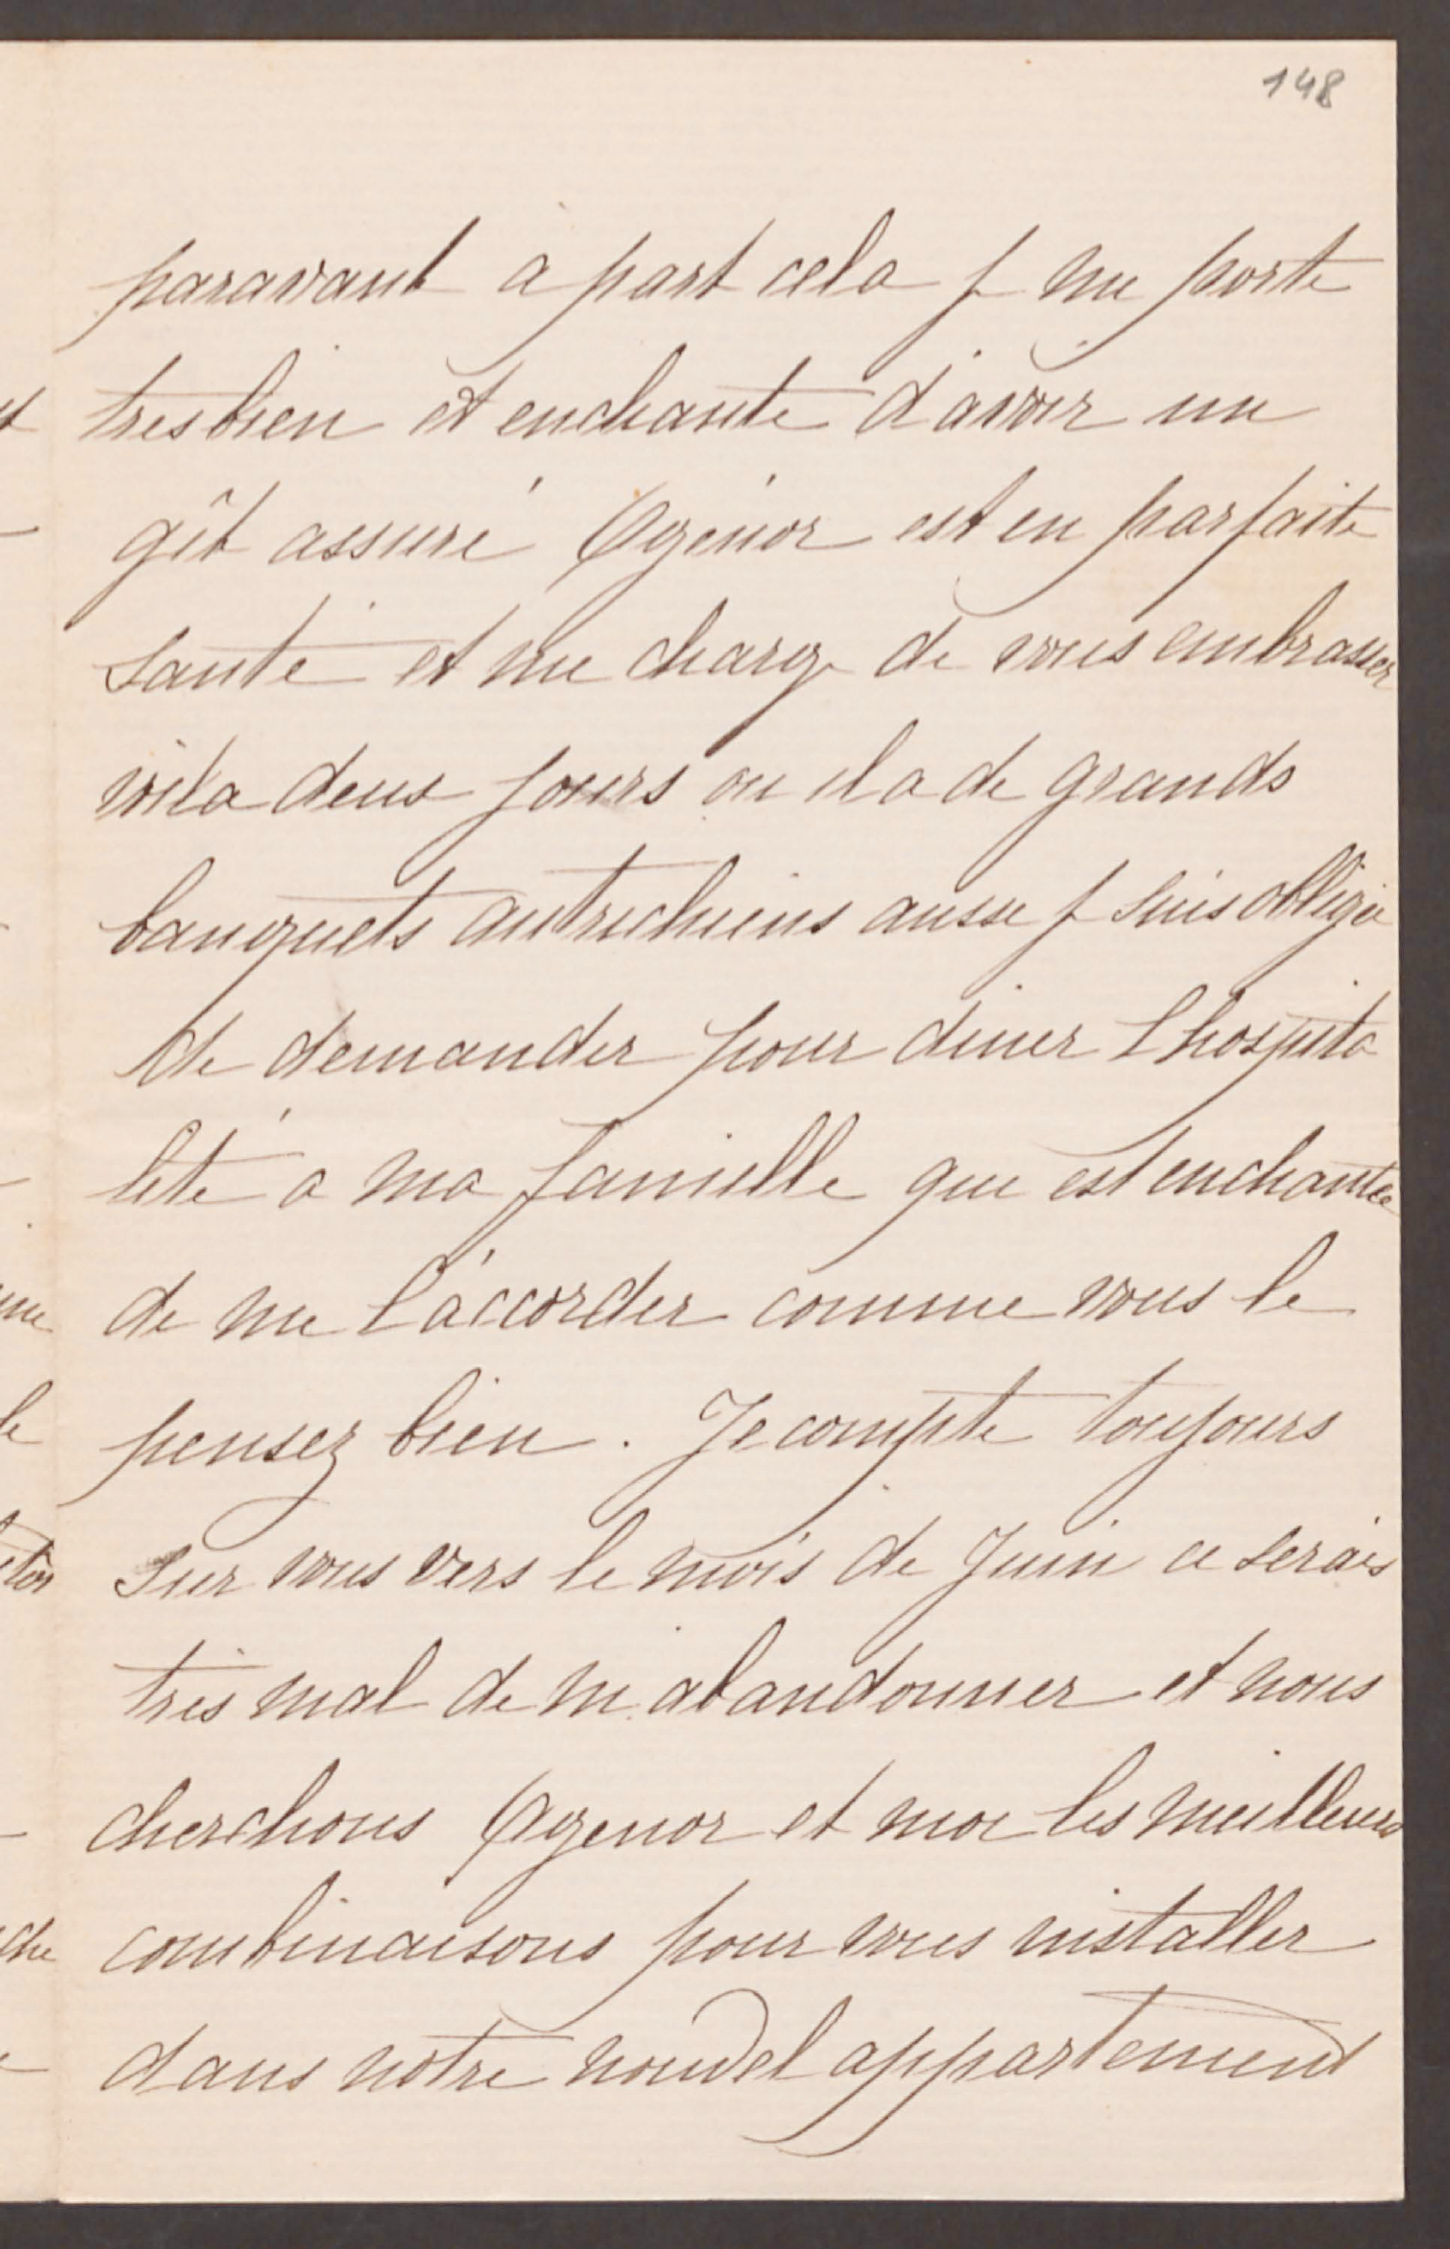 148
paravant a part cela je me porte
tres bien et enchante d'avoir un
gît assuré Agénor est en parfaite
santé et me charge de vous embrasser
voila deux jours ou il a de grands
banquets autrichiens aussi je suis obligée
de demander pour diner l hospita
lité a ma famille qui est enchantée
de me l'accorder comme vous le
pensez bien . Je compte toujours
sur vous vers le mois de Juin ce serais
très mal de m abandonner et nous
cherchons Agenor et moi les meilleures
combinaisons pour vous installer
dans notre nouvel appartement